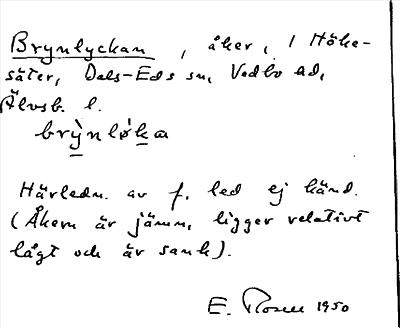 Brynlyckan, åker, i Höke-
säter, Dals-Eds sn, Vedbo hd,
Älvsb. l.
brỳnlø̀ka
Härledn. av f. led ej känd.
(Åkern är jämn, ligger relativt
lågt och är sank).
E. Rosell 1950